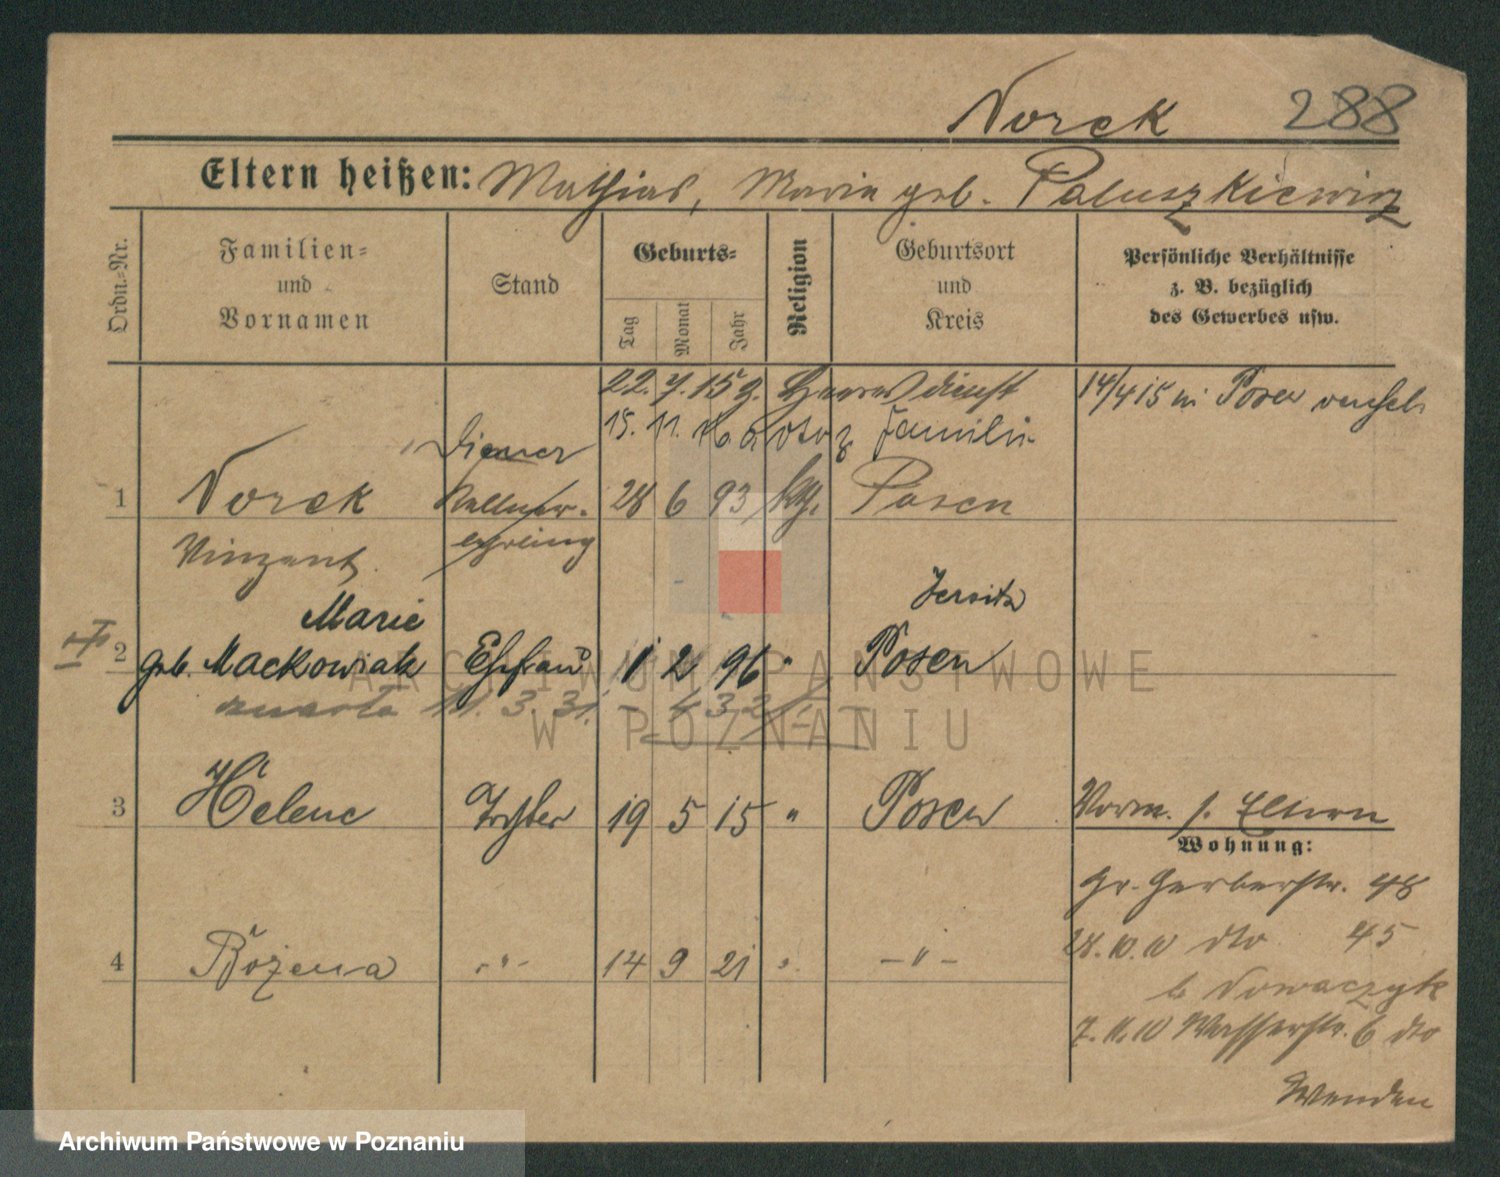 Norek 288
Eltern heißen: Mathias, Maria geb. Paluszkiewicz
Ordn.-Nr.
Familien-
und
Vornamen
Stand
Geburts-
Tag
Monat
Jahr
Religion
Geburtsort
und
Kreis
Persönliche Verhältnisse
z. B. bezüglich
des Gewerbes usw.
22. 7. 15 z. Heeresdienst
14/4 15 in Posen
15. 11. Familie
Diener
1 Norek Kellner- 28 6 93 kth. Posen
Vinzent lehrling
Marie Jersitz
2 geb. Mackowiak Ehefrau 1 2 96 " Posen
zmarła 11. 3. 31.
3 Helene Tochter 19 5 15 " Posen
Vorm. s. Eltern
Wohnung:
Gr. Gerberstr. 48
28.10.10 dto 45
b Nowaczyk
7.11.10 Wasserstr. 6 dto
Wenden
4 Bożena -"- 14 9 21 " -"-
ARCHIWUM PAŃSTWOWE
W POZNANIU
Archiwum Państwowe w Poznaniu